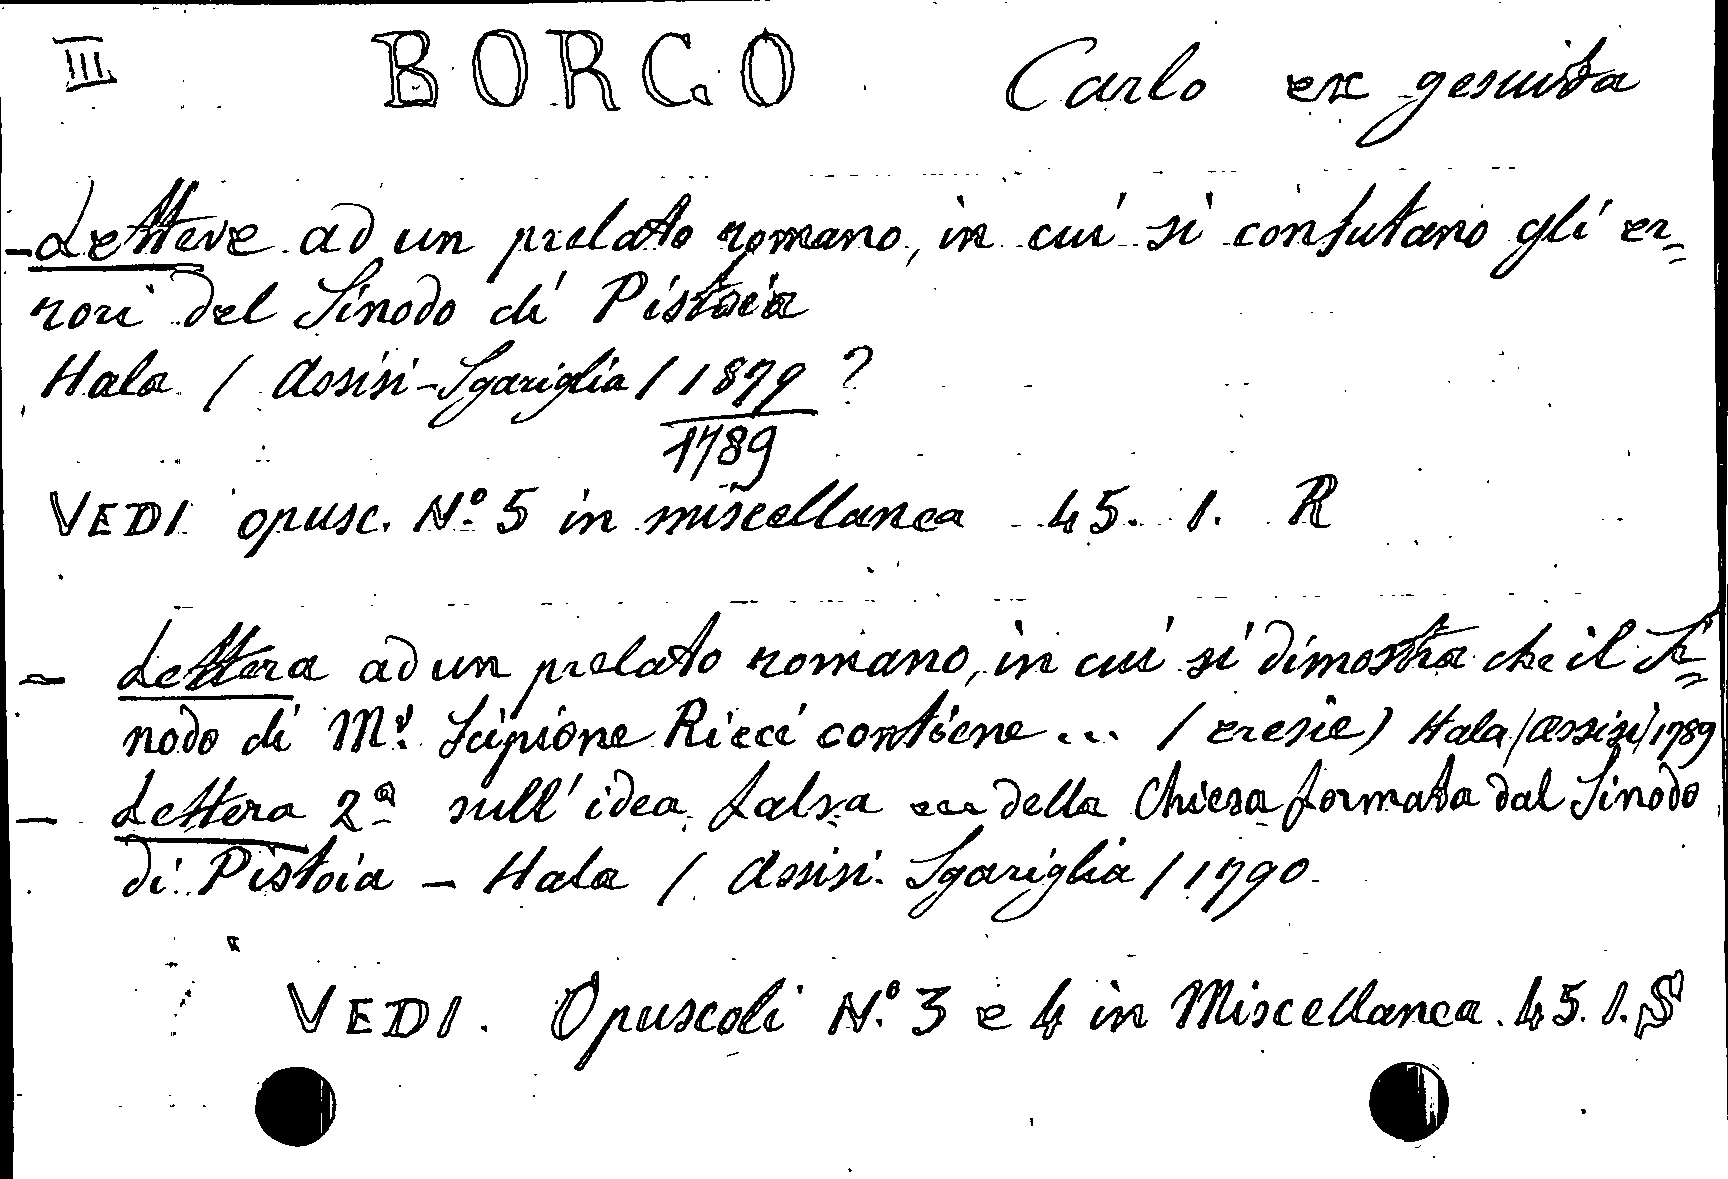 III BORGO Carlo ex gesuita
- Lettere ad un prelato romano, in cui si confutano gli er=
rori del Sinodo di Pistoia
Hala / Assisi-Sgariglia / 1879 ?
1789
VEDI opusc. N.° 5 in miscellanea 45. 1. R
- Lettera ad un prelato romano, in cui si dimostra che il Si=
nodo di Mr. Scipione Ricci contiene ... / eresie) Hala /Assisi/1789
- Lettera 2ª sull'idea falsa della Chiesa formata dal Sinodo
di Pistoia - Hala / Assisi. Sgariglia / 1790.
VEDI. Opuscoli N.° 3 e 4 in Miscellanea. 45. 1. S